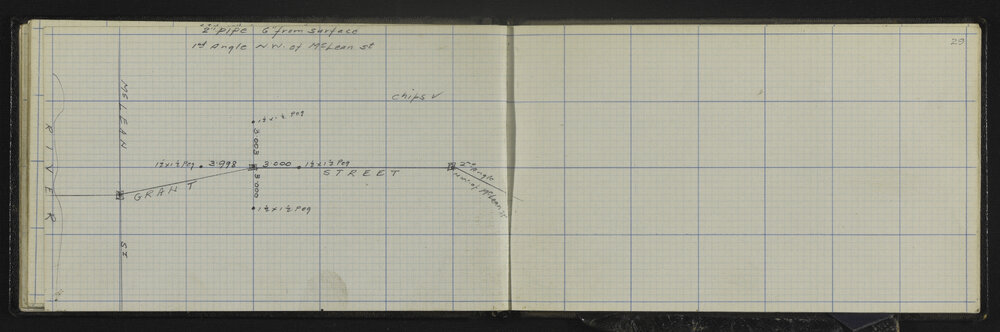 2" pipe 6" from surface
1st Angle N.W. of McLean st
29
Chips ✓
McLEAN ST
RIVER
1½x1½ Peg
3.003
1½x1½ Peg 3.998
3.000 1½x1½ Peg
GRANT STREET
3.000
1½x1½ Peg
2nd Angle
N.W. of McLean St